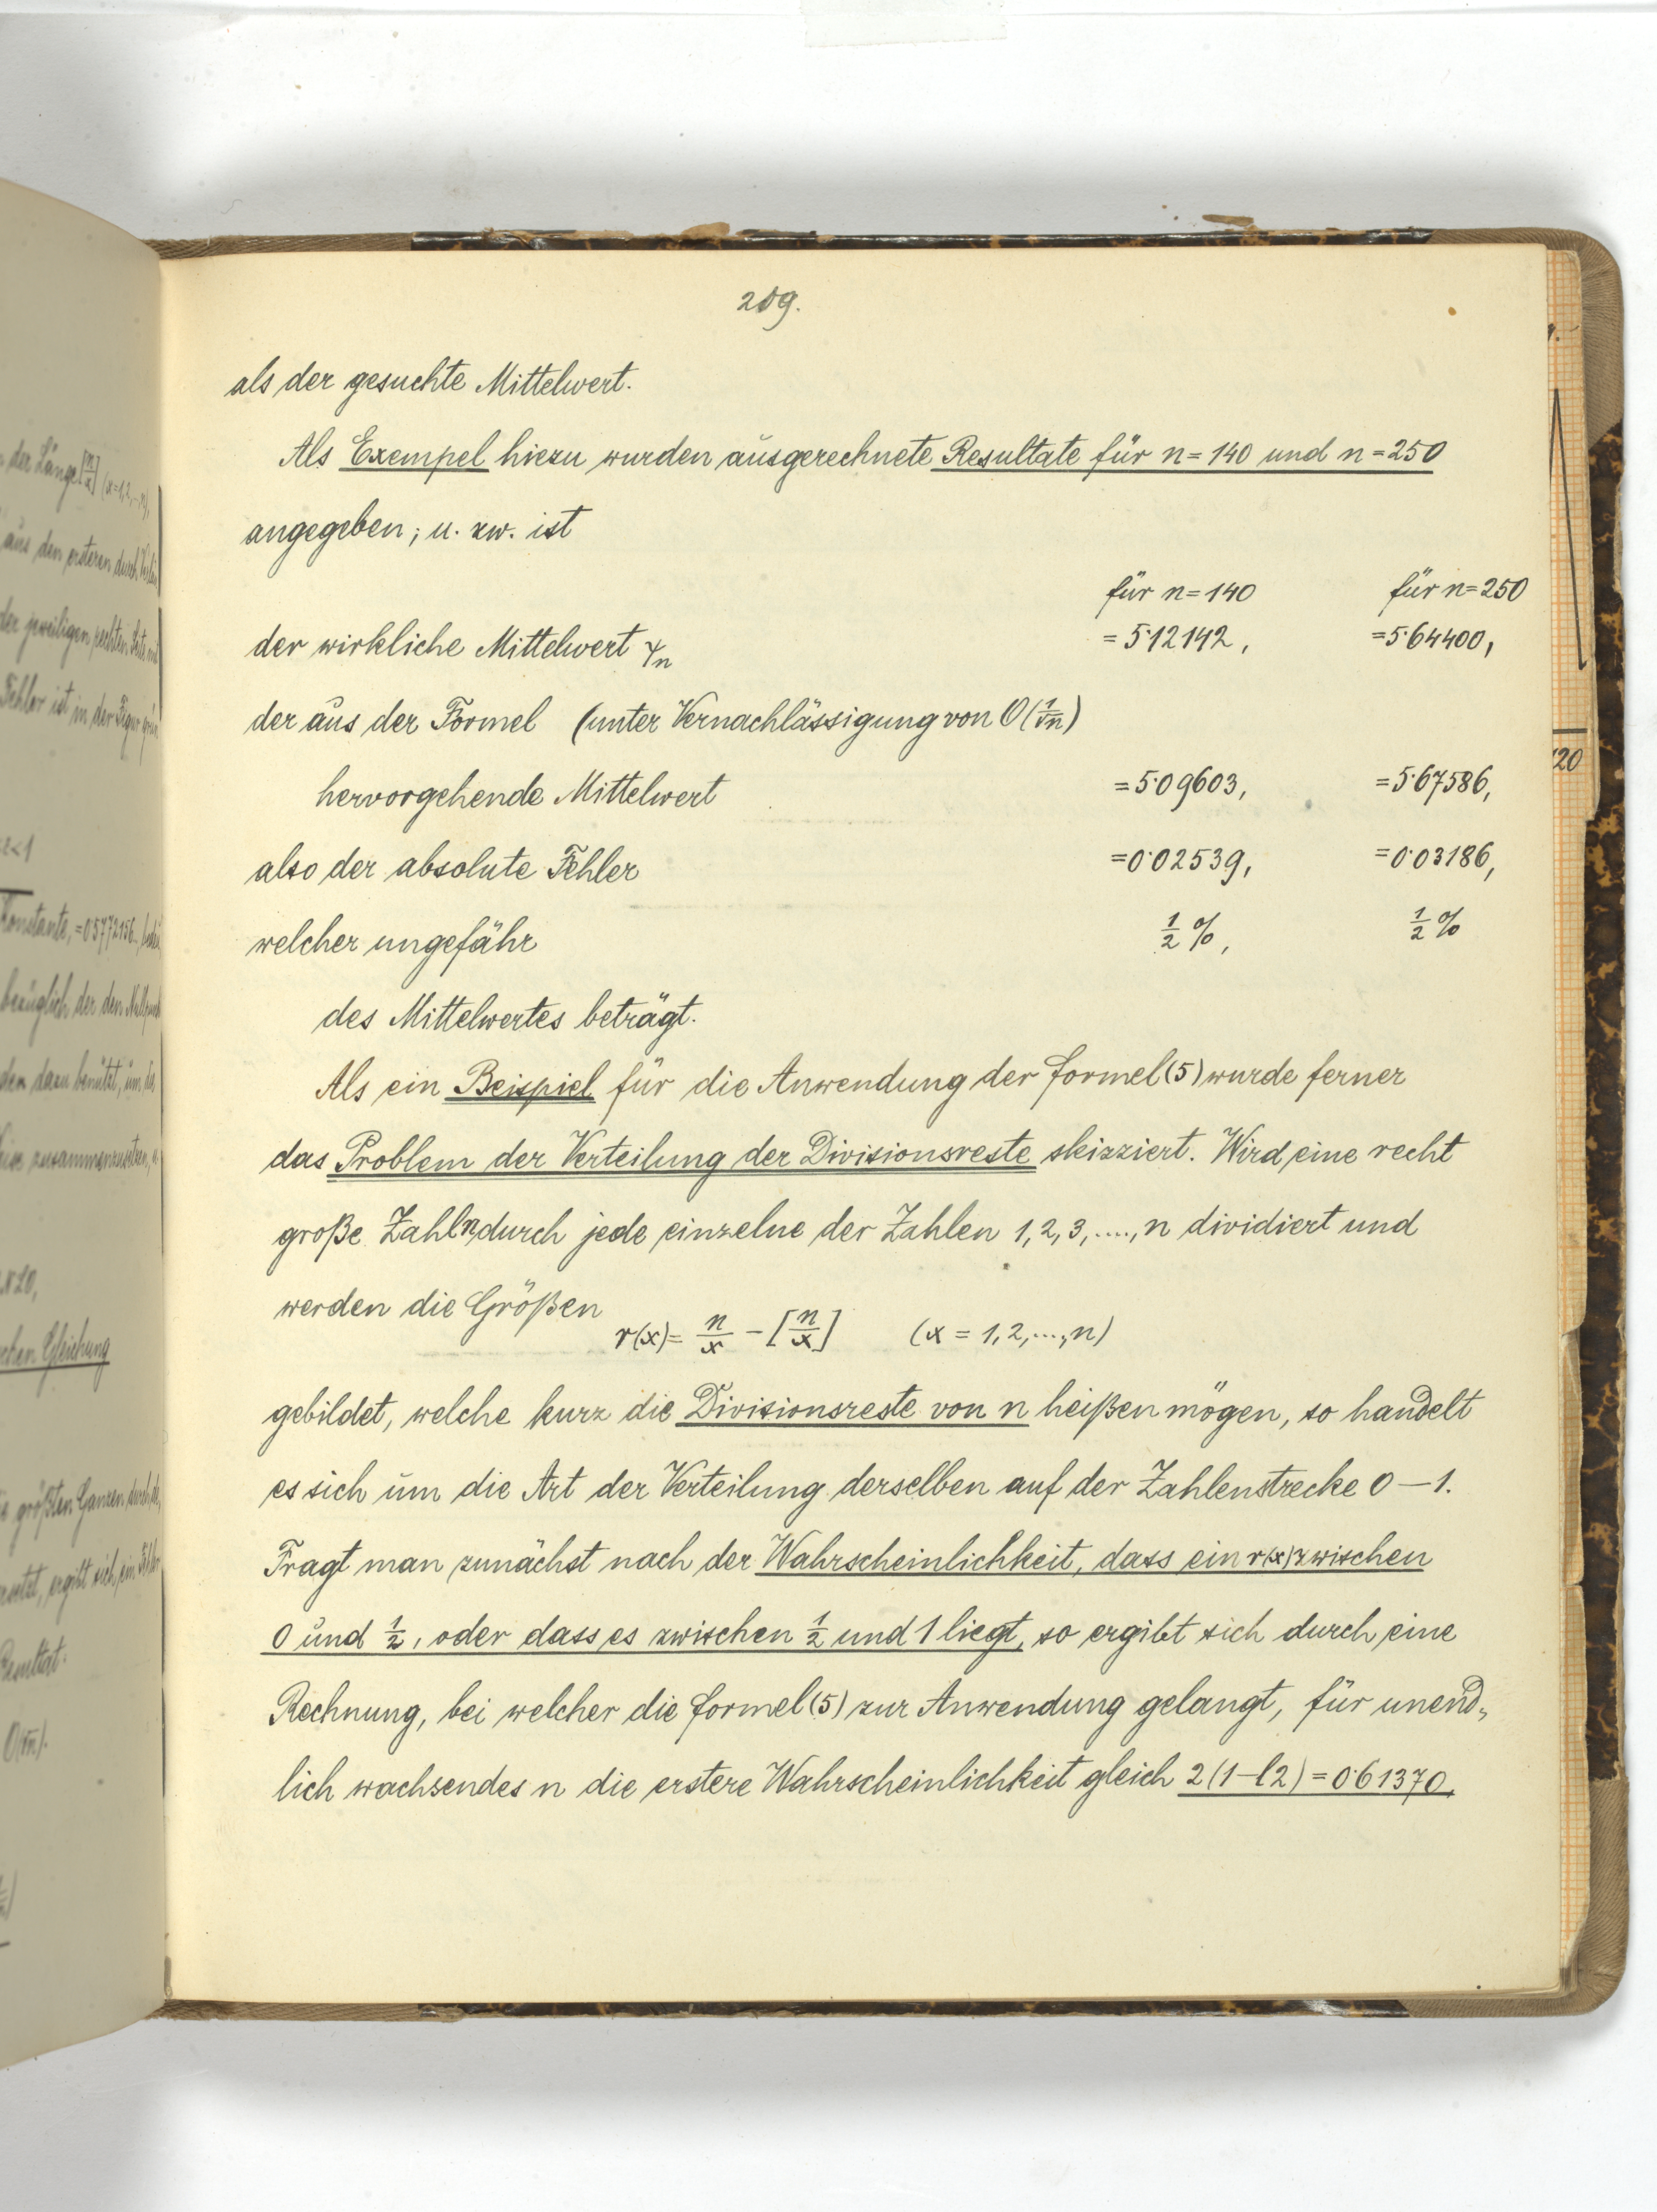 209.
als der gesuchte Mittelwert.
Als Exempel hiezu wurden ausgerechnete Resultate für n = 140 und n = 250
angegeben; u. zw. ist
für n = 140 für n = 250
der wirkliche Mittelwert γₙ = 5·12142, = 5·64400,
der aus der Formel (unter Vernachlässigung von O(1/√n)
hervorgehende Mittelwert = 5·09603, = 5·67586,
also der absolute Fehler = 0·02539, = 0·03186,
welcher ungefähr ½ %, ½ %
des Mittelwertes beträgt.
Als ein Beispiel für die Anwendung der Formel (5) wurde ferner
das Problem der Verteilung der Divisionsreste skizziert. Wird eine recht
große Zahl n durch jede einzelne der Zahlen 1, 2, 3, ...., n dividiert und
werden die Größen
r(x) = n/x − [n/x] (x = 1, 2, ..., n)
gebildet, welche kurz die Divisionsreste von n heißen mögen, so handelt
es sich um die Art der Verteilung derselben auf der Zahlenstrecke 0 — 1.
Fragt man zunächst nach der Wahrscheinlichkeit, dass ein r(x) zwischen
0 und ½, oder dass es zwischen ½ und 1 liegt, so ergibt sich durch eine
Rechnung, bei welcher die Formel (5) zur Anwendung gelangt, für unend„
lich wachsendes n die erstere Wahrscheinlichkeit gleich 2(1 − l2) = 0·61370,
20